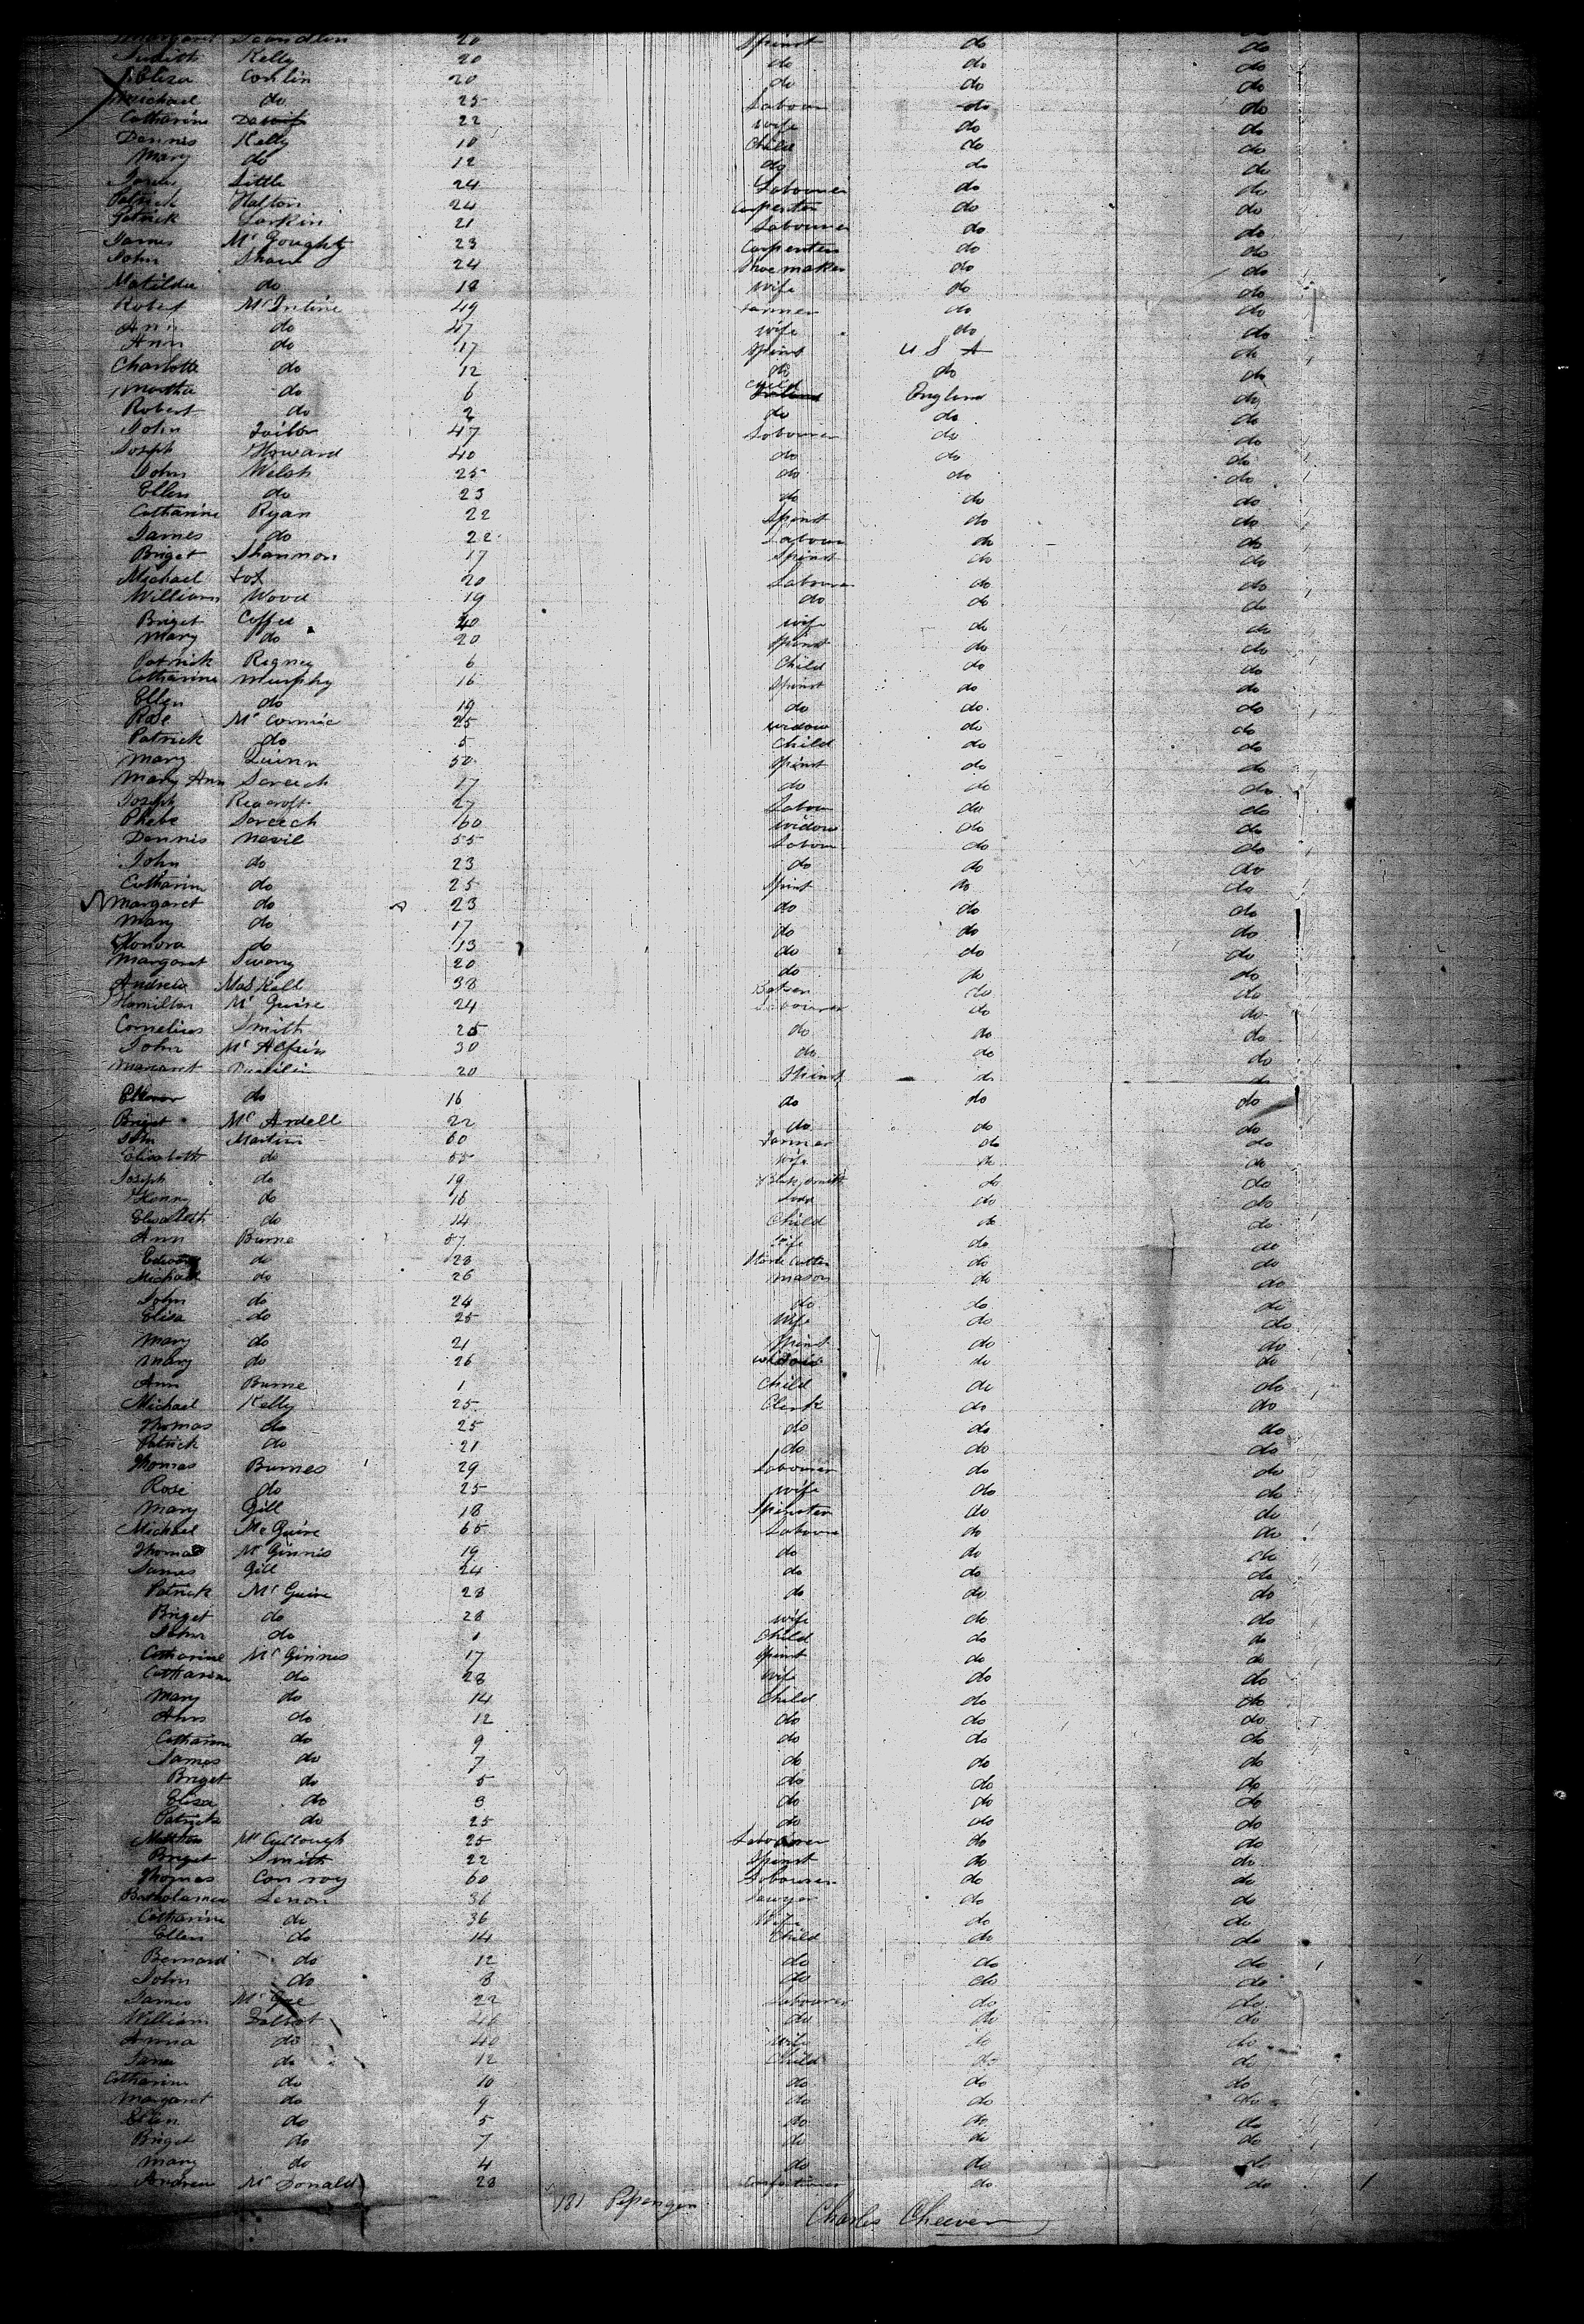 Margaret Scandlin 20 Spinst do do
Judith Kelly 20 do do do
Eliza Conlin 20 do do do
Michael do 25 Labour do do
Catharine 22 wife do do
Dennis Kelly 10 Child do do
Mary do 12 do do do
James Little 24 Labourer do do
Patrick Halton 24 Carpenter do do
Patrick Larkin 21 Labourer do do
James Mc Goughty 23 Carpenter do do
John Shaw 24 Shoemaker do do
Matilda do 18 wife do do
Robert Mc Intine 49 Farmer do do
Ann do 47 wife do do
Ann do 17 Spinst U S A do
Charlotte do 12 do do do
Martha do 6 Child England do
Robert do 2 do do do
John Tailor 47 Labourer do do
Joseph Howard 40 do do do
John Welsh 25 do do do
Ellen do 23 do do do
Catharine Ryan 22 Spinst do do
James do 22 Labour do do
Briget Shannon 17 Spinst do do
Michael Fox 20 Labour do do
William Wood 19 do do do
Briget Coffee 40 wife do do
Mary do 20 Spinst do do
Patrick Rigney 6 Child do do
Catharine Murphy 16 Spinst do do
Ellen do 19 do do do
Rose Mc Cormic 25 widow do do
Patrick do 5 Child do do
Mary Quinn 50 Spinst do do
Mary Ann Screech 17 do do do
Joseph Reacroft 27 Labour do do
Phebe Screech 60 widow do do
Dennis Nevil 55 Labour do do
John do 23 do do do
Catharin do 25 Spinst do do
Margaret do 23 do do do
Mary do 17 do do do
Honora do 13 do do do
Margaret Sweny 20 do do do
Andrew Maskill 38 do do
Hamilton Mc Guire 24 Labourer do do
Cornelius Smith 25 do do do
John Mc Alpin 30 do do do
Margaret 20 Spinst do do
Ellenor do 16 do do do
Briget Mc Ardell 22 do do do
John Martin 60 Farmer do do
Elisabeth do 55 wife do do
Joseph do 19 Blacksmith do do
Henry do 16 do do
Elisabeth do 14 Child do do
Ann Burne 57 wife do do
Edward do 28 Stone Cutter do do
Michael do 26 mason do do
John do 24 do do do
Elisa do 25 Wife do do
Mary do 21 Spinst do do
Mary do 26 widow do do
Ann Burne 1 Child do do
Michael Kelly 25 Clerk do do
Thomas do 25 do do do
Patrick do 21 do do do
Thomas Burnes 29 Labourer do do
Rose do 25 wife do do
Mary Gill 18 Spinster do do
Michael Mc Guire 65 Labour do do
Thomas Mc Ginnis 19 do do do
James Gill 24 do do do
Patrick Mc Guire 28 do do do
Briget do 28 wife do do
John do 1 Child do do
Catharine Mc Ginnis 17 Spinst do do
Catharine do 28 wife do do
Mary do 14 Child do do
Ann do 12 do do do
Catharine do 9 do do do
James do 7 do do do
Briget do 5 do do do
Elisa do 3 do do do
Patrick do 25 do do do
Mc Cullough 25 Labourer do do
Briget Smith 22 Spinst do do
Thomas Conroy 60 Labourer do do
Bartholamew Lenon 36 Sawyer do do
Catharine do 36 Wife do do
Ellen do 14 Child do do
Bernard do 12 do do do
John do 8 do do do
James Mc Gee 22 Labourer do do
William Talbot 46 do do do
Anna do 40 wife do do
Jane do 12 Child do do
Catharine do 10 do do do
Margaret do 9 do do do
Ellen do 5 do do do
Briget do 7 do do do
Mary do 4 do do do
Andrew Mc Donald 28 Confectioner do do
181
Charles Cheever